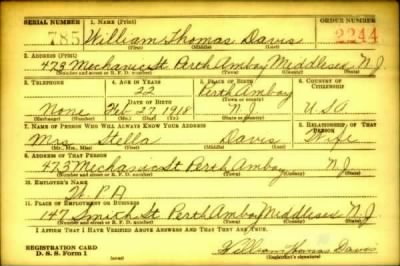 SERIAL NUMBER 1. NAME (Print) ORDER NUMBER
785 William Thomas Davis 2244
(First) (Middle) (Last)
2. ADDRESS (Print)
473 Mechanic St. Perth Amboy Middlesex N.J
(Number and street or R. F. D. number) (Town) (County) (State)
3. TELEPHONE 4. AGE IN YEARS 5. PLACE OF BIRTH 6. COUNTRY OF CITIZENSHIP
22 Perth Amboy
DATE OF BIRTH (Town or county)
None Feb 27 1918 N.J U.S.A
(Mo.) (Day) (Yr.) (State or country)
7. NAME OF PERSON WHO WILL ALWAYS KNOW YOUR ADDRESS 8. RELATIONSHIP OF THAT PERSON
Mrs Stella Davis Wife
(Mr., Mrs., Miss) (First) (Middle) (Last)
9. ADDRESS OF THAT PERSON
473 Mechanic St Perth Amboy N.J
(Number and street or R. F. D. number) (Town) (County) (State)
10. EMPLOYER'S NAME
W.P.A
11. PLACE OF EMPLOYMENT OR BUSINESS
147 Smith St. Perth Amboy Middlesex N.J
(Number and street or R. F. D. number) (Town) (County) (State)
I AFFIRM THAT I HAVE VERIFIED ABOVE ANSWERS AND THAT THEY ARE TRUE.
REGISTRATION CARD William Thomas Davis
D. S. S. Form 1 (over) (Registrant's signature)